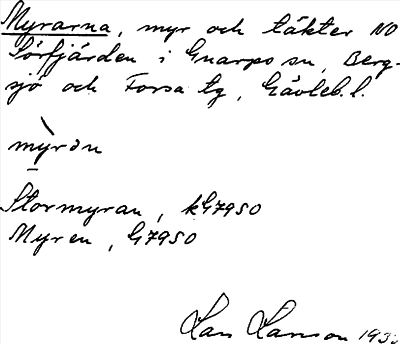 Myrarna, myr och täkter NO
Sörfjärden i Gnarps sn, Berg-
sjö och Forsa tg, Gävleb. l.
mỳ̱rən
Stormyran, kG7950
Myren, G7950
Lars Larsson 193